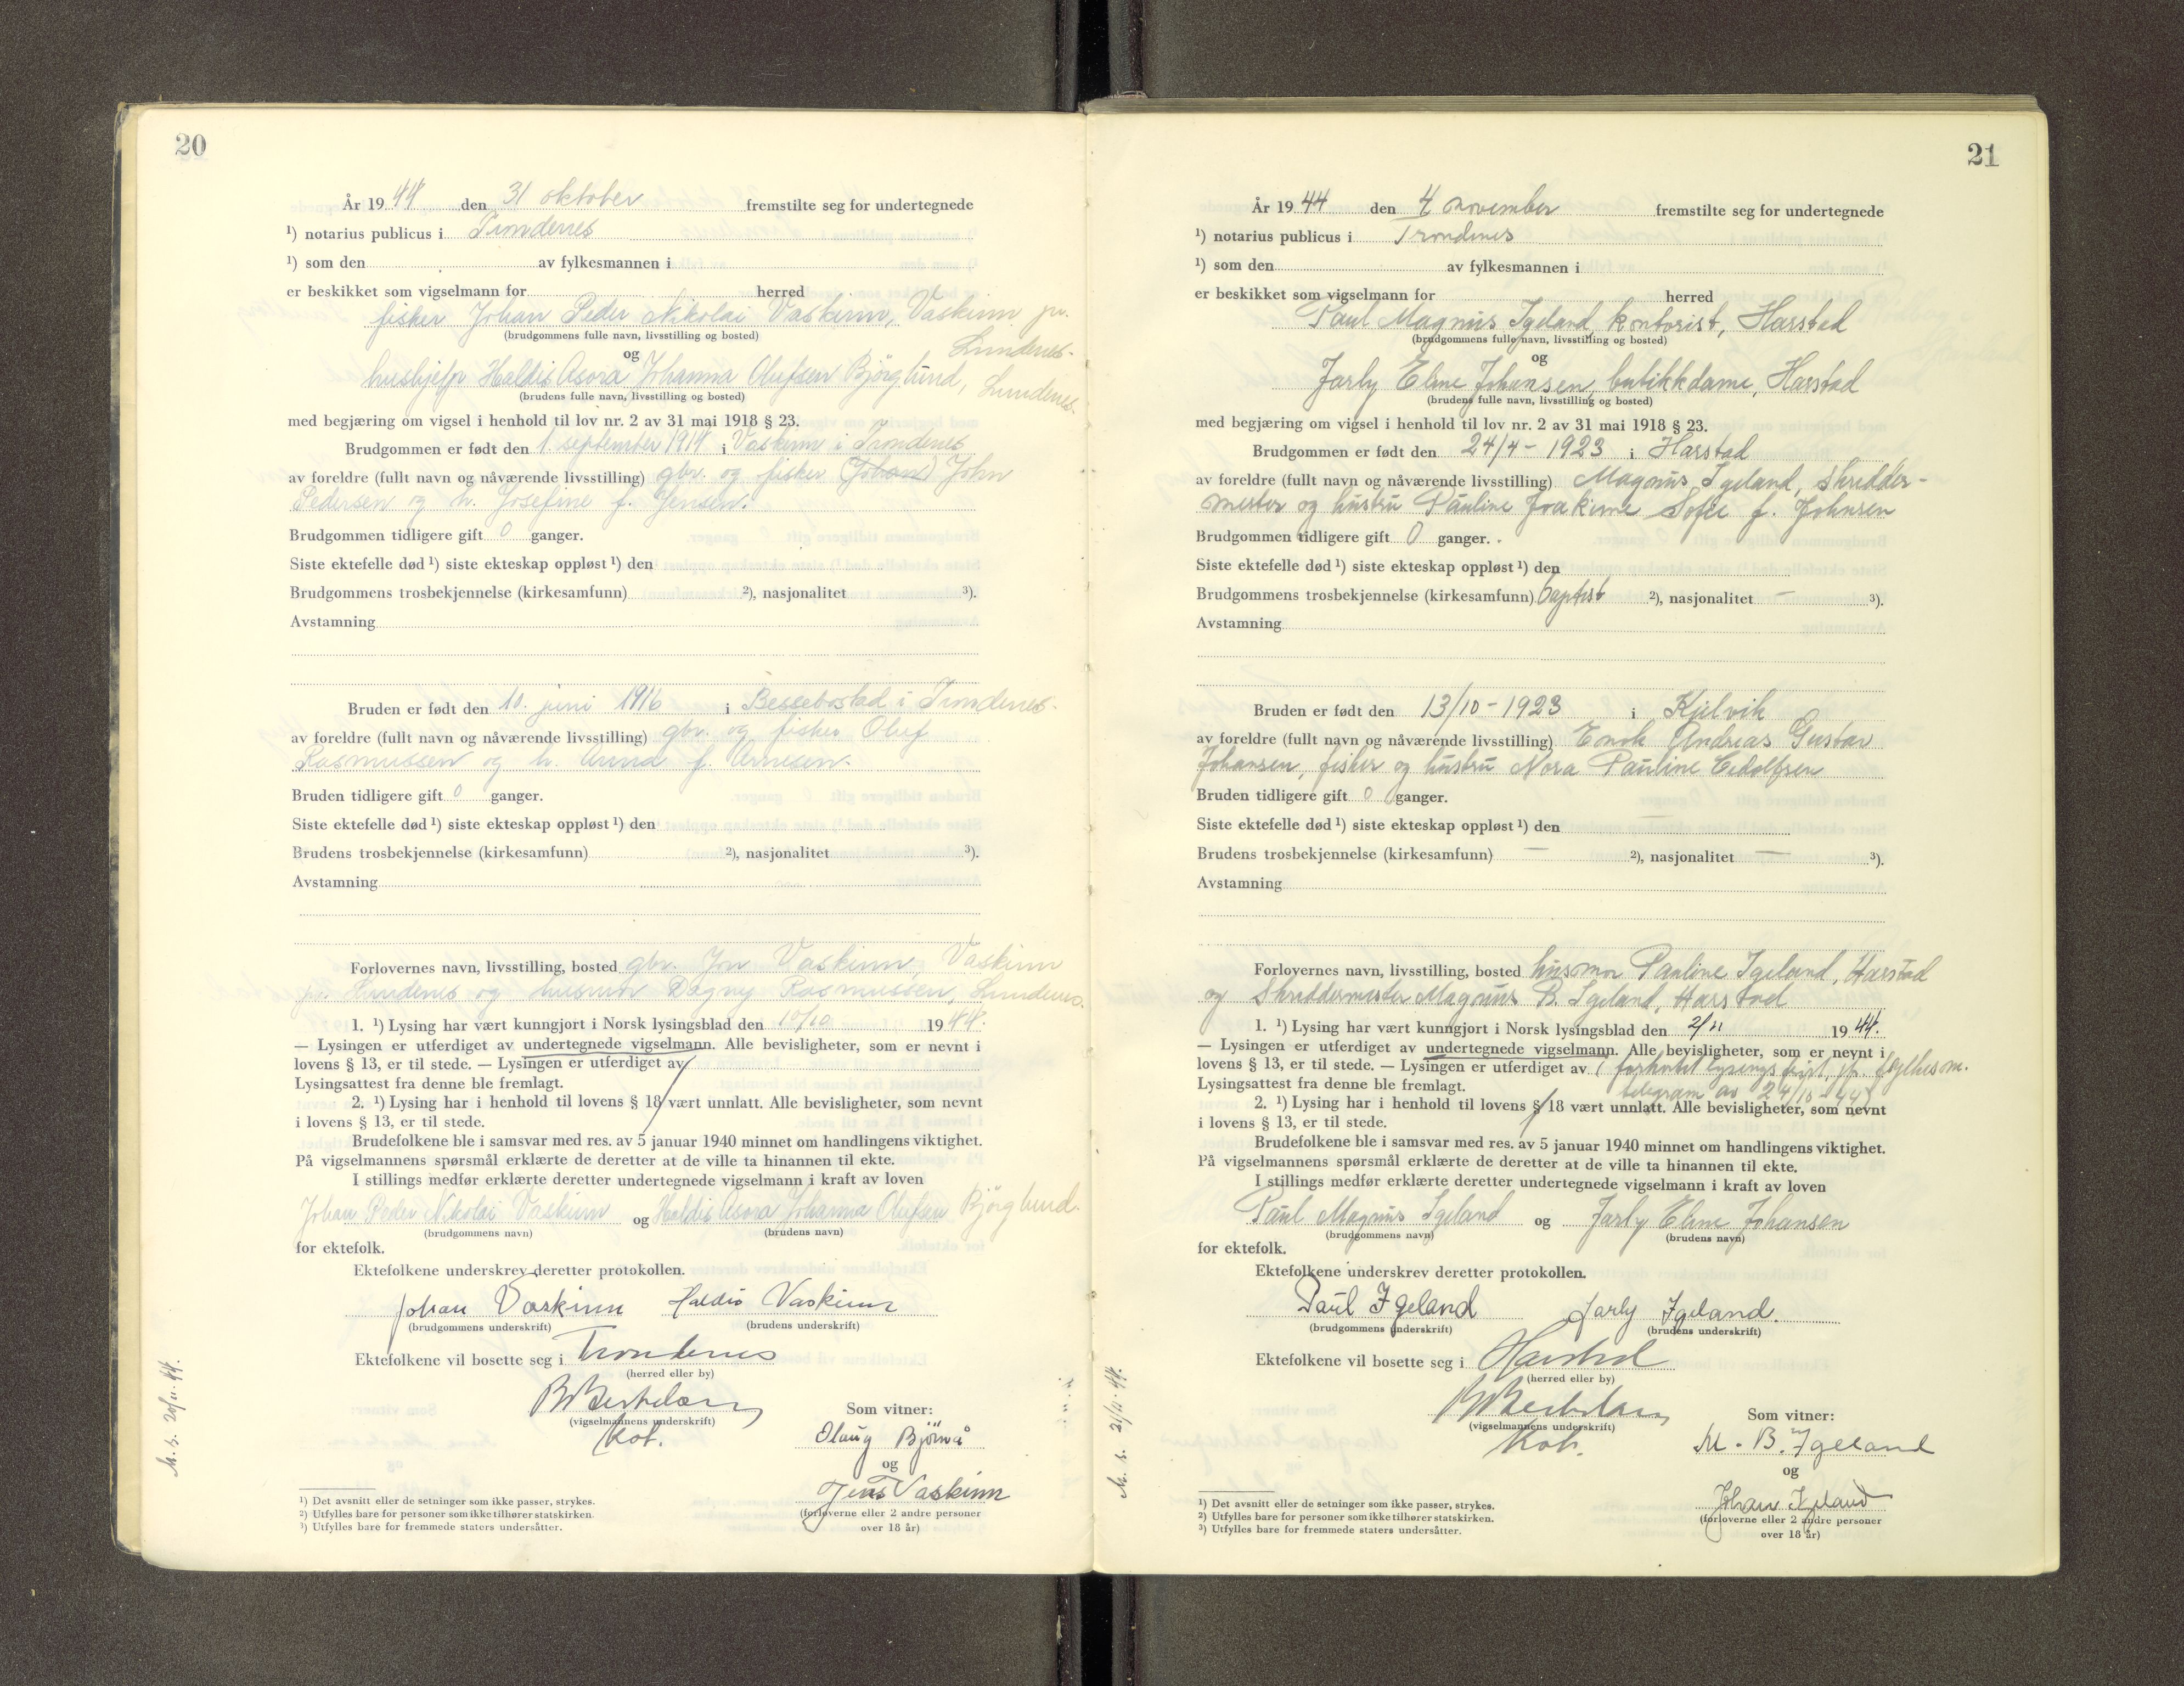 20
År 1944 den 31 oktober fremstilte seg for undertegnede
¹) notarius publicus i Trondenes
¹) som den av fylkesmannen i
er beskikket som vigselmann for herred
fisker Johan Peder Nikolai Vaskinn, Vaskinn pr.
(brudgommens fulle navn, livsstilling og bosted)
og Lundenes.
hushjelp Haldis Asora Johanna Olufsen Björglund, Lundenes.
(brudens fulle navn, livsstilling og bosted)
med begjæring om vigsel i henhold til lov nr. 2 av 31 mai 1918 § 23.
Brudgommen er født den 1. september 1914 i Vaskinn i Trondenes
av foreldre (fullt navn og nåværende livsstilling) gbr. og fisker (Johan) John
Pedersen og h. Josefine f. Jensen.
Brudgommen tidligere gift 0 ganger.
Siste ektefelle død ¹) siste ekteskap oppløst ¹) den
Brudgommens trosbekjennelse (kirkesamfunn) ²), nasjonalitet ³).
Avstamning
Bruden er født den 10. juni 1916 i Bessebostad i Trondenes.
av foreldre (fullt navn og nåværende livsstilling) gbr. og fisker Oluf
Rasmussen og h. Anna f. Arnesen.
Bruden tidligere gift 0 ganger.
Siste ektefelle død ¹) siste ekteskap oppløst ¹) den
Brudens trosbekjennelse (kirkesamfunn) ²), nasjonalitet ³).
Avstamning
Forlovernes navn, livsstilling, bosted gbr. Jon Vaskinn, Vaskinn
pr. Lundenes og husmor Dagny Rasmussen, Lundenes.
1. ¹) Lysing har vært kunngjort i Norsk lysingsblad den 10/10 1944.
— Lysingen er utferdiget av undertegnede vigselmann. Alle bevisligheter, som er nevnt i
lovens § 13, er til stede. — Lysingen er utferdiget av
Lysingsattest fra denne ble fremlagt.
2. ¹) Lysing har i henhold til lovens § 18 vært unnlatt. Alle bevisligheter, som nevnt
i lovens § 13, er til stede.
Brudefolkene ble i samsvar med res. av 5 januar 1940 minnet om handlingens viktighet.
På vigselmannens spørsmål erklærte de deretter at de ville ta hinannen til ekte.
I stillings medfør erklærte deretter undertegnede vigselmann i kraft av loven
Johan Peder Nikolai Vaskinn og Haldis Asora Johanna Olufsen Björglund.
(brudgommens navn) (brudens navn)
for ektefolk.
Ektefolkene underskrev deretter protokollen.
Johan Vaskinn Haldis Vaskinn
(brudgommens underskrift) (brudens underskrift)
Ektefolkene vil bosette seg i Trondenes
(herred eller by)
(vigselmannens underskrift)
Som vitner:
Olaug Björnå
og
Jens Vaskinn
(forloverne eller 2 andre personer
over 18 år)
¹) Det avsnitt eller de setninger som ikke passer, strykes.
²) Utfylles bare for personer som ikke tilhører statskirken.
³) Utfylles bare for fremmede staters undersåtter.
M. s. 20/11-44.
21
År 1944 den 4 november fremstilte seg for undertegnede
¹) notarius publicus i Trondenes
¹) som den av fylkesmannen i
er beskikket som vigselmann for herred
Paul Magnus Igeland, kontorist, Harstad
(brudgommens fulle navn, livsstilling og bosted)
og
Jarly Eline Johansen, butikkdame, Harstad
(brudens fulle navn, livsstilling og bosted)
med begjæring om vigsel i henhold til lov nr. 2 av 31 mai 1918 § 23.
Brudgommen er født den 24/4 - 1923 i Harstad
av foreldre (fullt navn og nåværende livsstilling) Magnus Igeland, skredder-
mester og hustru Pauline Joakime Sofie f. Johnsen
Brudgommen tidligere gift 0 ganger.
Siste ektefelle død ¹) siste ekteskap oppløst ¹) den
Brudgommens trosbekjennelse (kirkesamfunn) baptist ²), nasjonalitet — ³).
Avstamning
Bruden er født den 13/10 - 1923 i Kjelvik
av foreldre (fullt navn og nåværende livsstilling) Enok Andreas Gustav
Johansen, fisker og hustru Nora Pauline Edolfsen
Bruden tidligere gift 0 ganger.
Siste ektefelle død ¹) siste ekteskap oppløst ¹) den
Brudens trosbekjennelse (kirkesamfunn) — ²), nasjonalitet — ³).
Avstamning
Forlovernes navn, livsstilling, bosted husmor Pauline Igeland, Harstad
og Skreddermester Magnus B. Igeland, Harstad
1. ¹) Lysing har vært kunngjort i Norsk lysingsblad den 2/11 1944.
— Lysingen er utferdiget av undertegnede vigselmann. Alle bevisligheter, som er nevnt i
lovens § 13, er til stede. — Lysingen er utferdiget av (forkortet lysingsfrist, jfr. fylkesm.
Lysingsattest fra denne ble fremlagt. telegram av 24/10-44)
2. ¹) Lysing har i henhold til lovens § 18 vært unnlatt. Alle bevisligheter, som nevnt
i lovens § 13, er til stede.
Brudefolkene ble i samsvar med res. av 5 januar 1940 minnet om handlingens viktighet.
På vigselmannens spørsmål erklærte de deretter at de ville ta hinannen til ekte.
I stillings medfør erklærte deretter undertegnede vigselmann i kraft av loven
Paul Magnus Igeland og Jarly Eline Johansen
(brudgommens navn) (brudens navn)
for ektefolk.
Ektefolkene underskrev deretter protokollen.
Paul Igeland Jarly Igeland.
(brudgommens underskrift) (brudens underskrift)
Ektefolkene vil bosette seg i Harstad
(herred eller by)
(vigselmannens underskrift)
Som vitner:
M. B. Igeland
og
Johan Igeland
(forloverne eller 2 andre personer
over 18 år)
¹) Det avsnitt eller de setninger som ikke passer, strykes.
²) Utfylles bare for personer som ikke tilhører statskirken.
³) Utfylles bare for fremmede staters undersåtter.
M. s. 21/11-44.